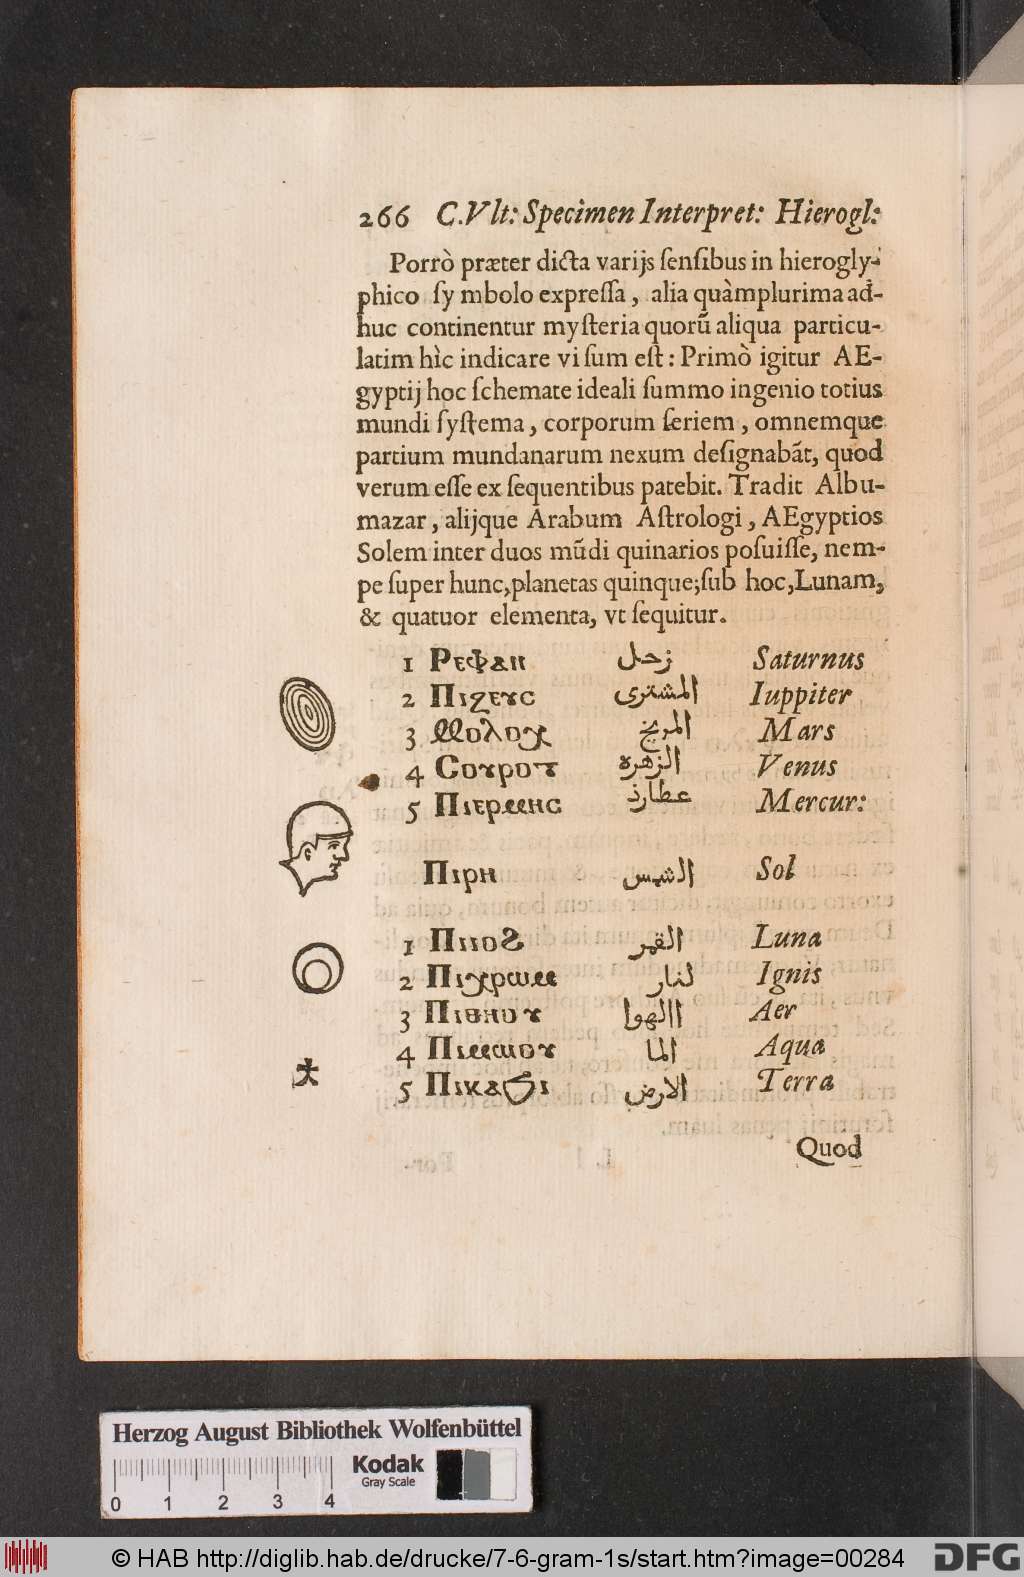 266 C.Vlt: Specimen Interpret: Hierogl:
Porrò præter dicta varijs ſenſibus in hierogly-
phico ſy mbolo expreſſa, alia quàmplurima ad-
huc continentur myſteria quorũ aliqua particu-
latim hìc indicare vi ſum eſt: Primò igitur AE-
gyptij hoc ſchemate ideali ſummo ingenio totius
mundi ſyſtema, corporum ſeriem, omnemque
partium mundanarum nexum deſignabãt, quod
verum eſſe ex ſequentibus patebit. Tradit Albu-
mazar, alijque Arabum Aſtrologi, AEgyptios
Solem inter duos mũdi quinarios poſuiſſe, nem-
pe ſuper hunc,planetas quinque;ſub hoc,Lunam,
& quatuor elementa, vt ſequitur.
1 Ⲣⲉⲫⲁⲛ زحل Saturnus
2 Ⲡⲓⲍⲉⲩⲥ المشترى Iuppiter
3 Ⲙⲟⲗⲟⲭ المريخ Mars
4 Ⲥⲟⲩⲣⲟⲧ الزهره Venus
5 Ⲡⲓⲉⲣⲙⲏⲥ عطارد Mercur:
Ⲡⲓⲣⲏ الشمس Sol
1 Ⲡⲓⲓⲟϩ القمر Luna
2 Ⲡⲓⲭⲣⲱⲙ لنار Ignis
3 Ⲡⲓⲑⲏⲟⲩ االهوا Aer
4 Ⲡⲓⲙⲱⲟⲩ الما Aqua
5 Ⲡⲓⲕⲁϩⲓ الارض Terra
Quod
Herzog August Bibliothek Wolfenbüttel
Kodak
Gray Scale
0 1 2 3 4
© HAB http://diglib.hab.de/drucke/7-6-gram-1s/start.htm?image=00284
DFG